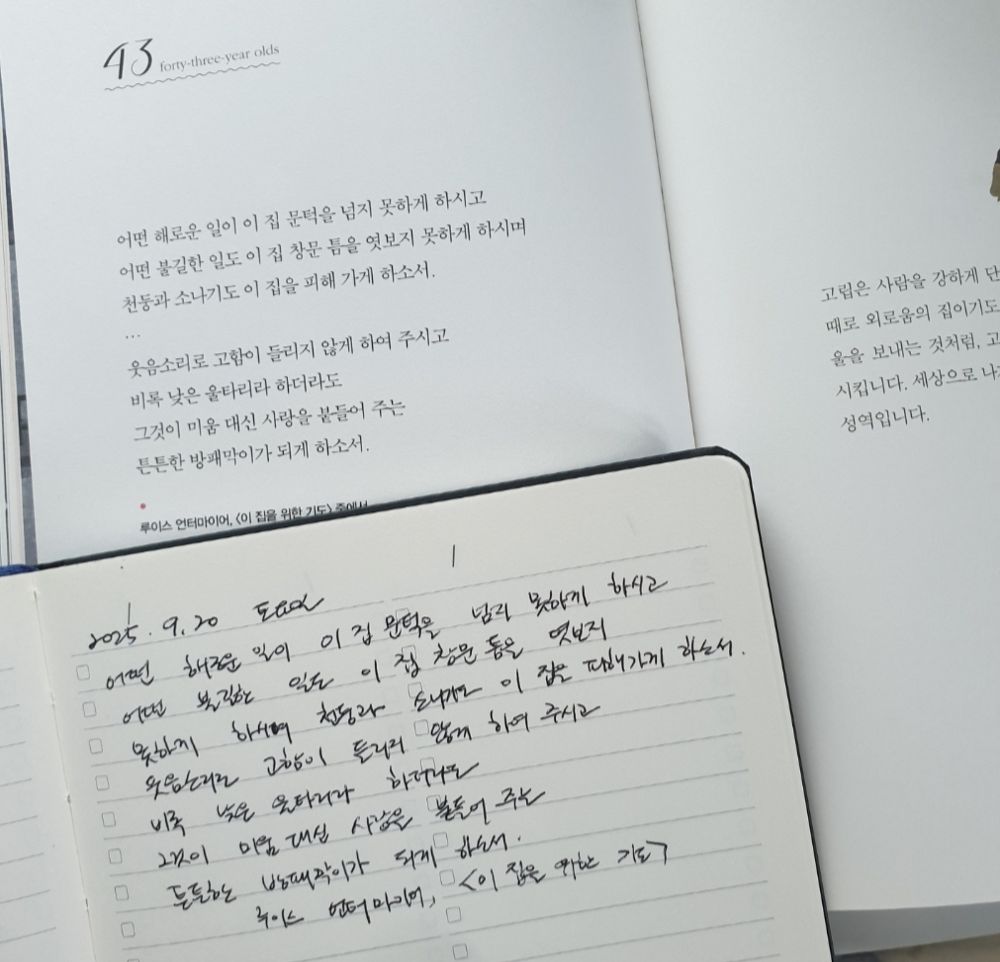 43 forty-three-year olds
어떤 해로운 일이 이 집 문턱을 넘지 못하게 하시고
어떤 불길한 일도 이 집 창문 틈을 엿보지 못하게 하시며
천둥과 소나기도 이 집을 피해 가게 하소서.
...
웃음소리로 고함이 들리지 않게 하여 주시고
비록 낮은 울타리라 하더라도
그것이 미움 대신 사랑을 붙들어 주는
튼튼한 방패막이가 되게 하소서.
루이스 언터마이어, <이 집을 위한 기도> 중에서
고립은 사람을 강하게 단
때로 외로움의 집이기도
울을 보내는 것처럼, 고
시킵니다. 세상으로 나
성역입니다.
2025. 9. 20 토요일
어떤 해로운 일이 이 집 문턱을 넘지 못하게 하시고
어떤 불길한 일도 이 집 창문 틈을 엿보지
못하게 하시며 천둥과 소나기도 이 집을 피해가게 하소서.
웃음소리로 고함이 들리지 않게 하여 주시고
비록 낮은 울타리라 하더라도
그것이 미움 대신 사랑을 붙들어 주는
튼튼한 방패막이가 되게 하소서.
루이스 언터마이어, <이 집을 위한 기도>